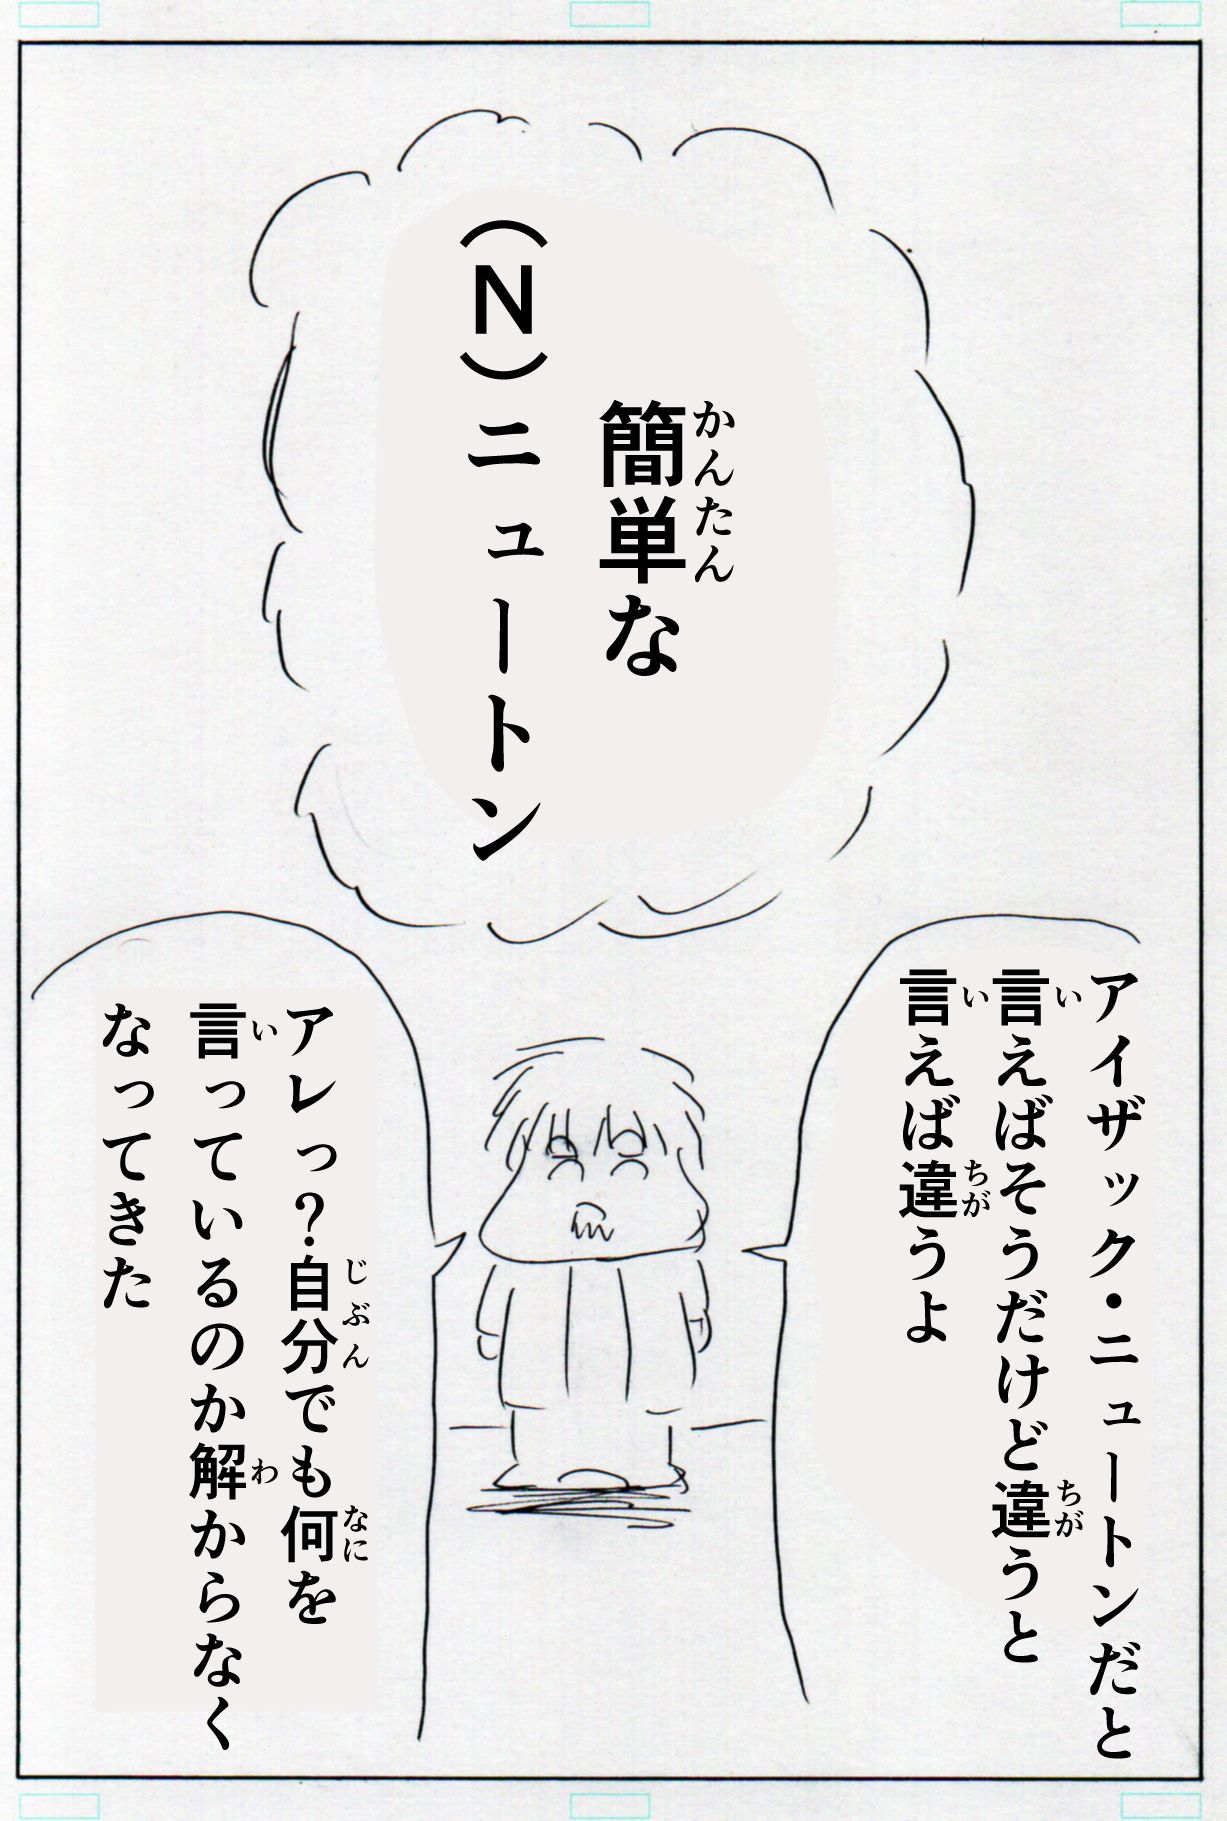 簡単な
（N）ニュートン
アイザック・ニュートンだと
言えばそうだけど違うと
言えば違うよ
アレっ？自分でも何を
言っているのか解からなく
なってきた